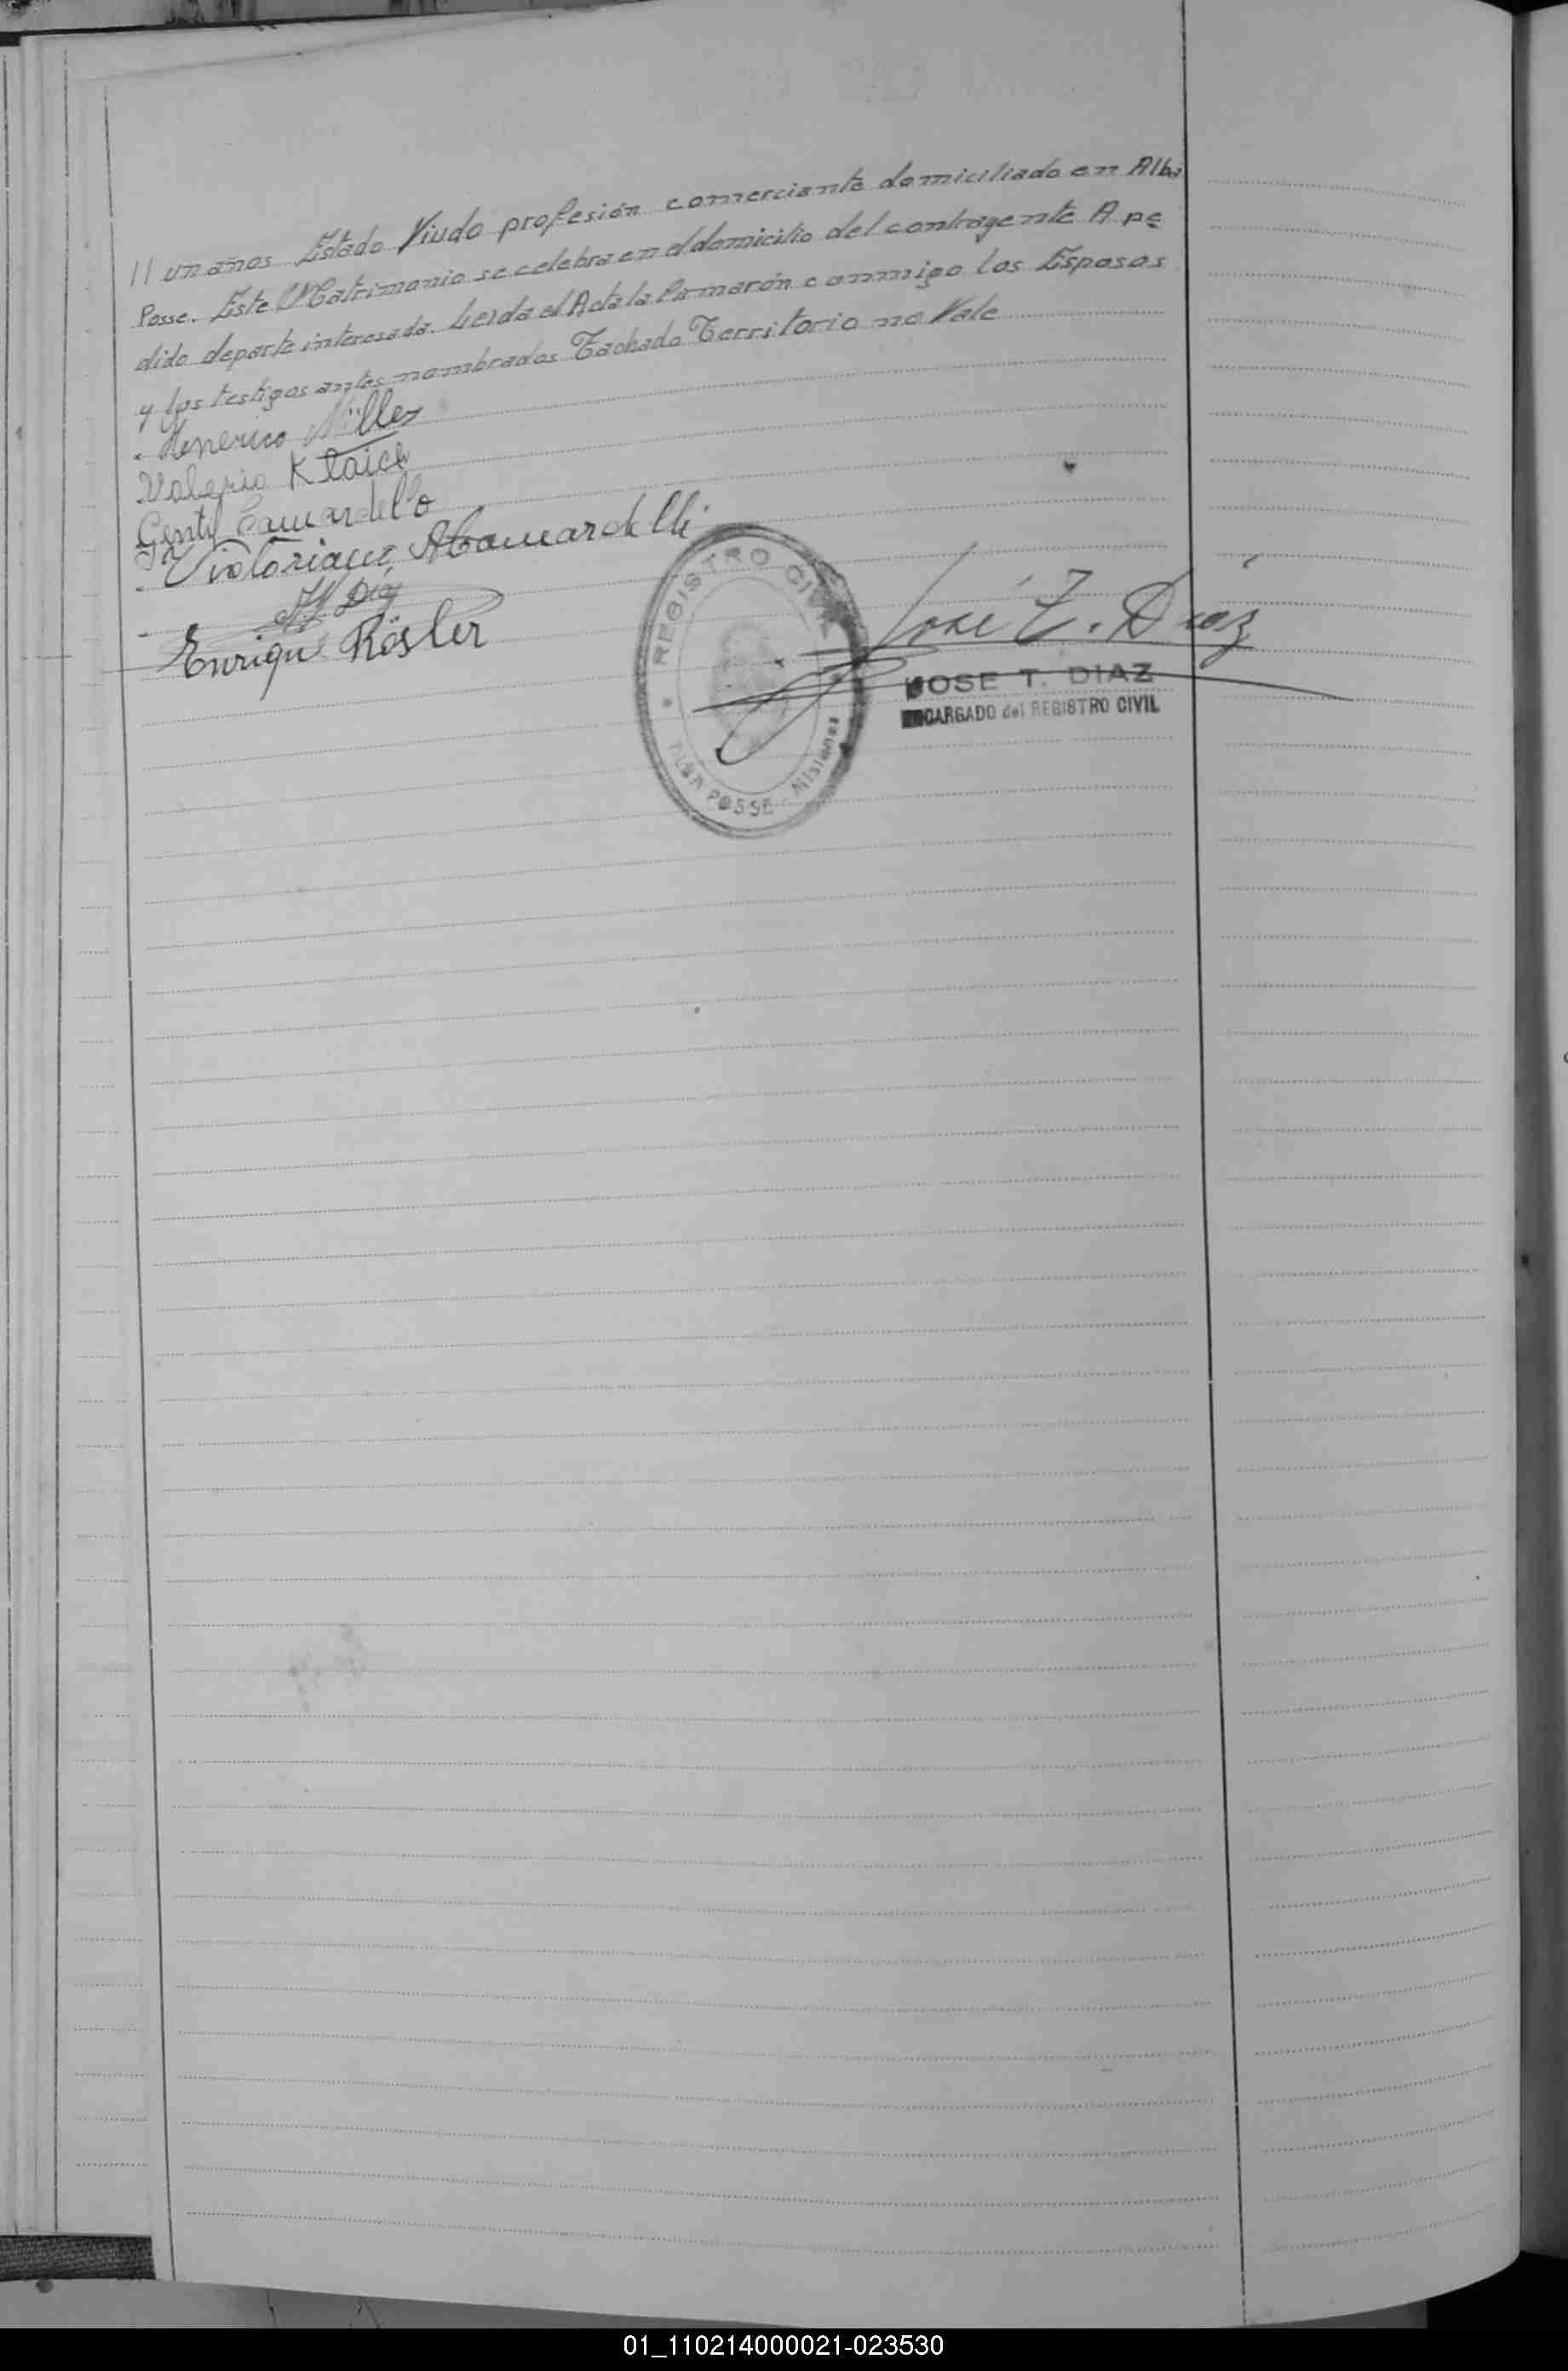 11 un años Estado Viudo profesión comerciante domiciliado en Alba
Posse. Este Matrimonio se celebra en el domicilio del contragente A pe
dido departe interesada. Leida el Acta la Firmarón conmmigo los Esposos
y los testigos antes nombrados Tachado Territorio no Vale
Miller
Valeria Klaich
Gentil Camardello
Victoriana A Camardelli
Enrique Rösler
REGISTRO CIVIL
ALBA POSSE - Misiones
José T. Diaz
JOSE T. DIAZ
ENCARGADO del REGISTRO CIVIL
01_110214000021-023530